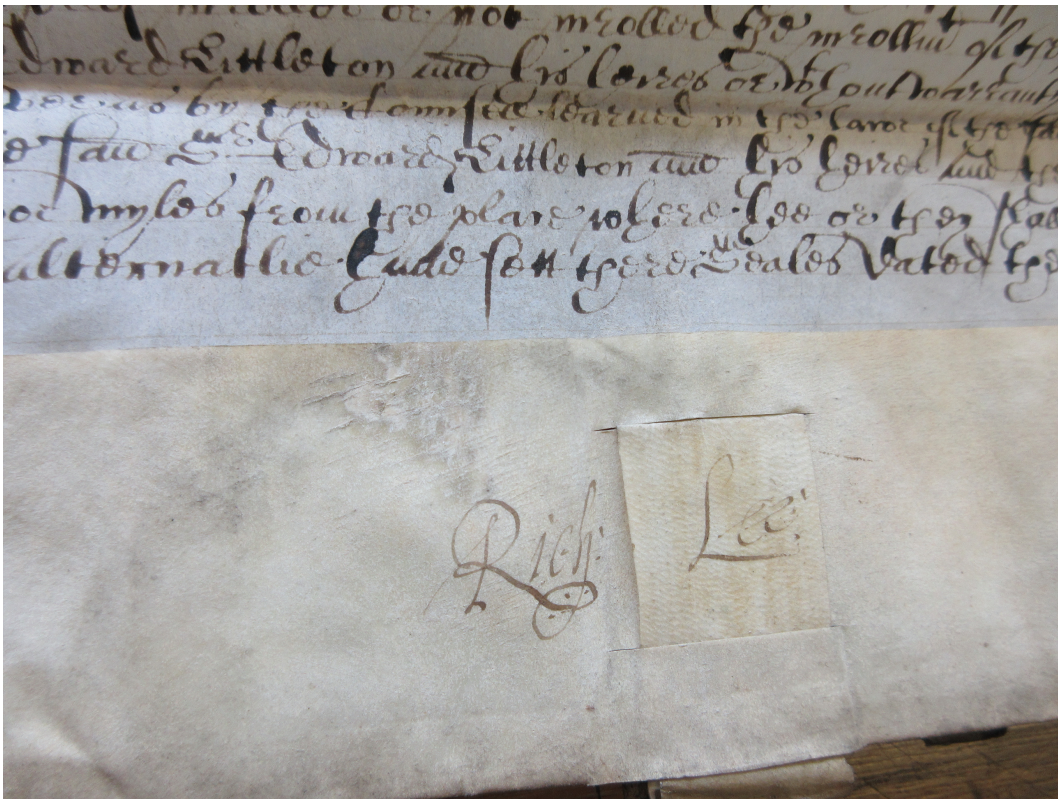 inrolled or not inrolled the inrollm of the
Edward Littleton and his heires or wthout warrantie
by the Counsell learned in the lawe of the sa
e said Sr Edward Littleton and his heires and the
or myles from the place where hee or they shal
alternatlie have sett there Seales Dated the
Rich: Lee: